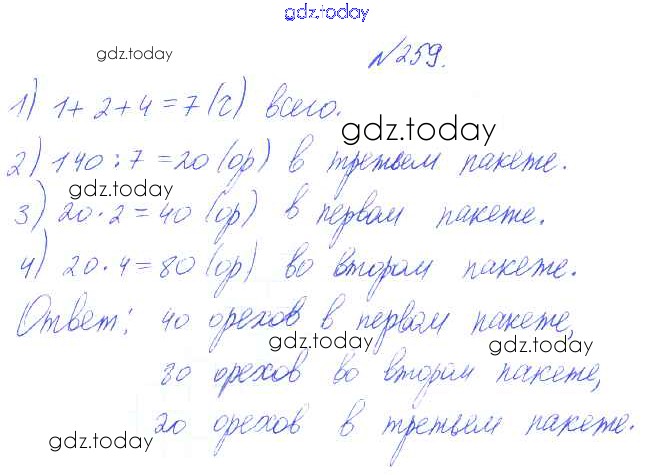 gdz.today
gdz.today
№259.
1) 1+2+4=7(ч) всего.
gdz.today
2) 140:7=20 (ор) в третьем пакете.
gdz.today
3) 20·2=40 (ор) в первом пакете.
4) 20·4=80 (ор) во втором пакете.
Ответ: 40 орехов в первом пакете,
gdz.today gdz.today
80 орехов во втором пакете,
20 орехов в третьем пакете.
gdz.today